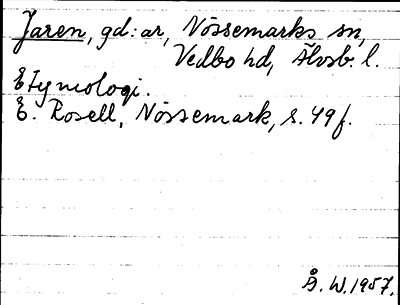 Jaren, gd:ar, Nössemarks sn,
Vedbo hd, Älvsb. l.
Etymologi.
E. Rosell, Nössemark, s. 49f.
Å. W. 1957.